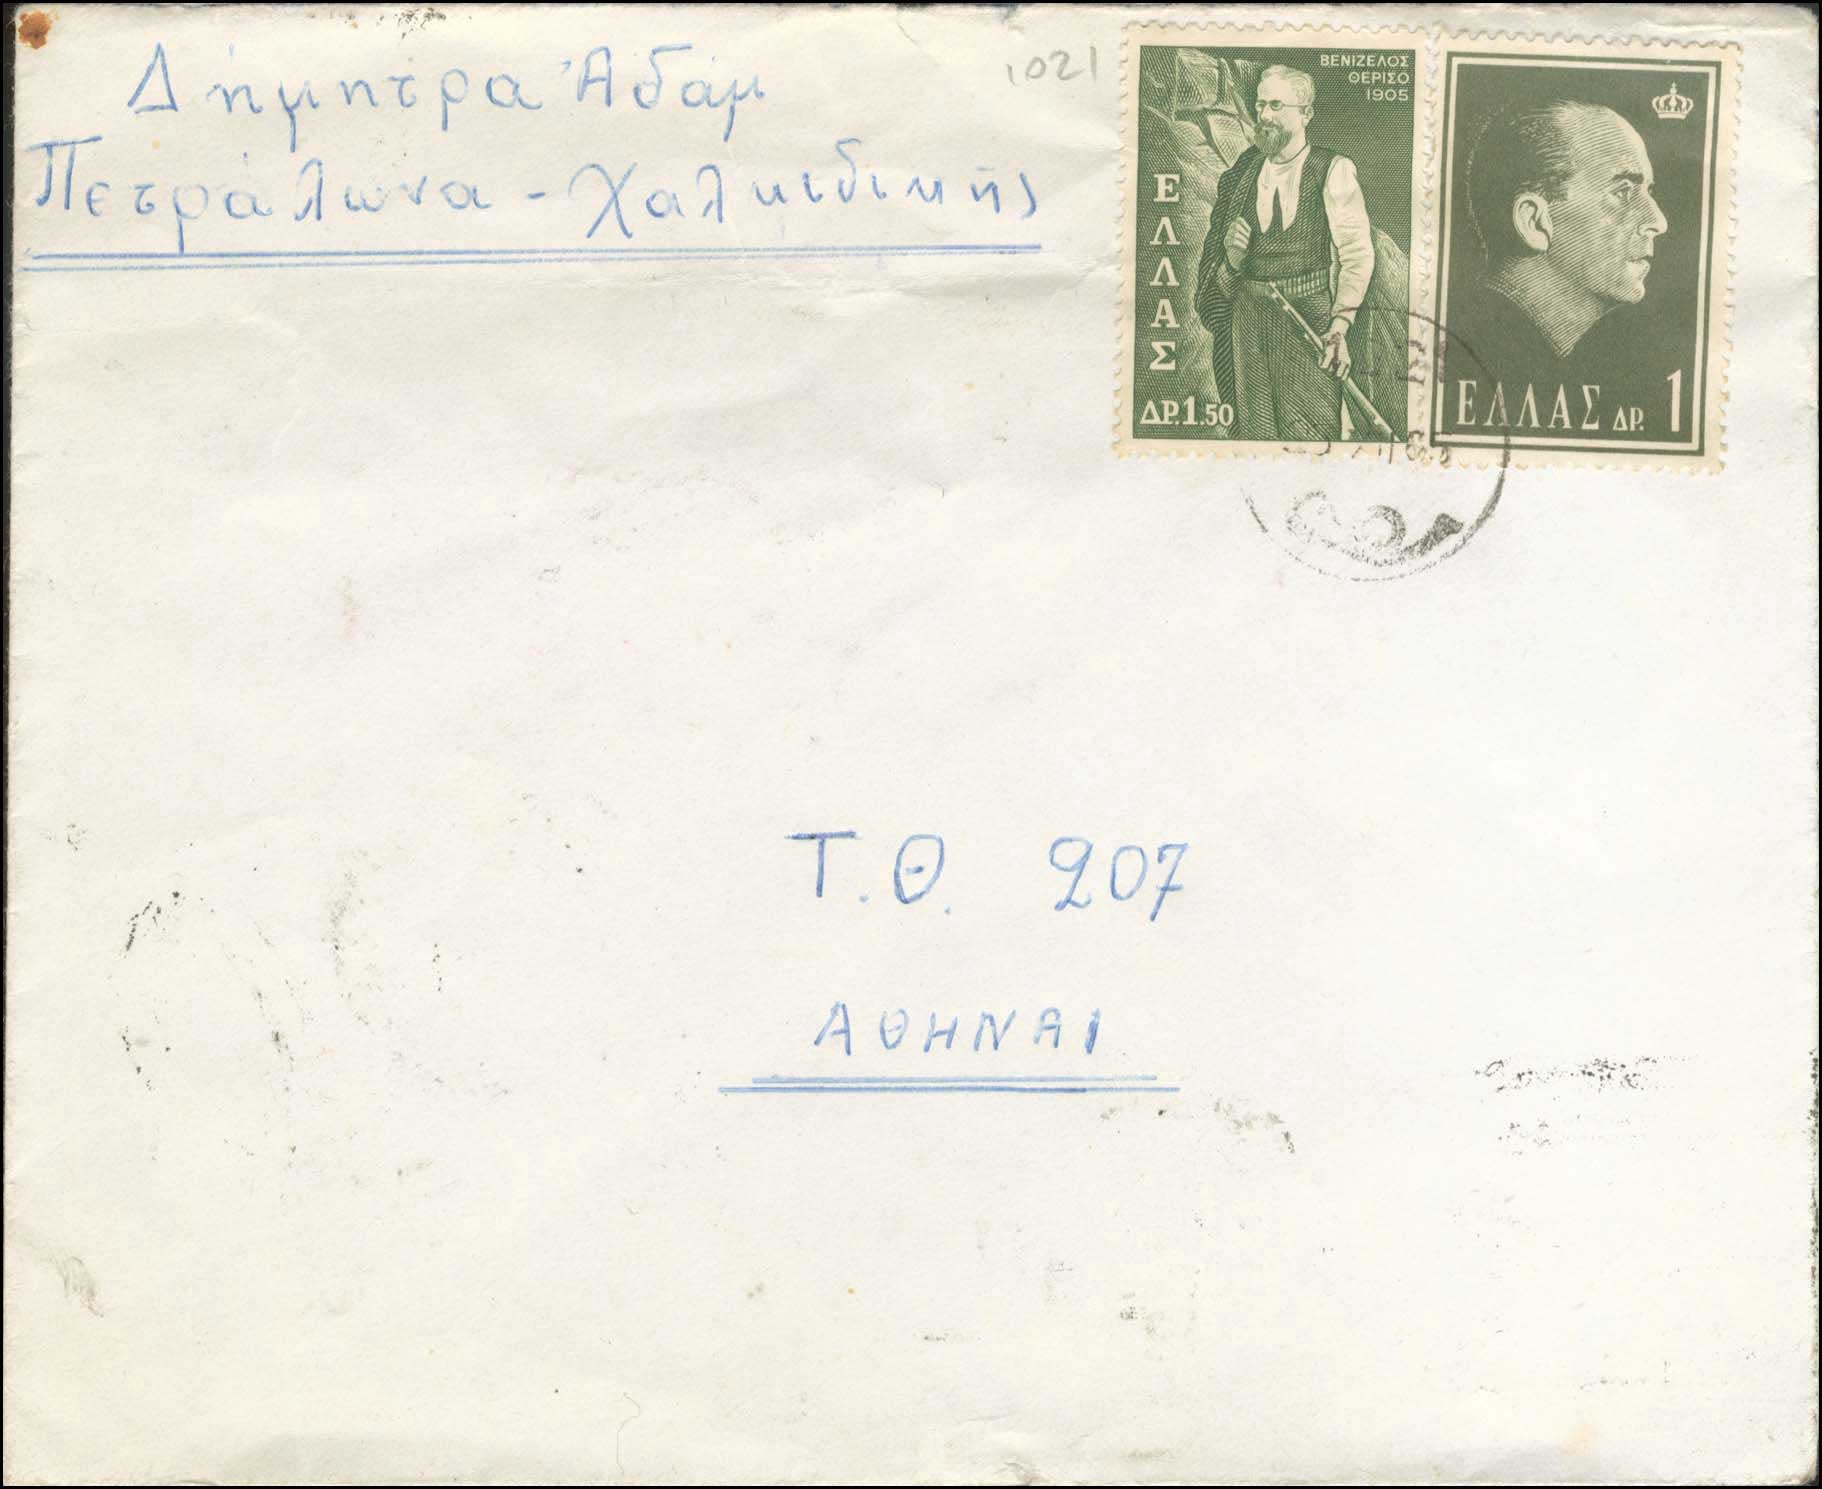 Δήμητρα Ἀδάμ
Πετράλωνα - Χαλκιδικῆς
1021
ΒΕΝΙΖΕΛΟΣ
ΘΕΡΙΣΟ
1905
ΕΛΛΑΣ
ΔΡ.1.50
ΕΛΛΑΣ ΔΡ. 1
Τ.Θ. 207
ΑΘΗΝΑΙ